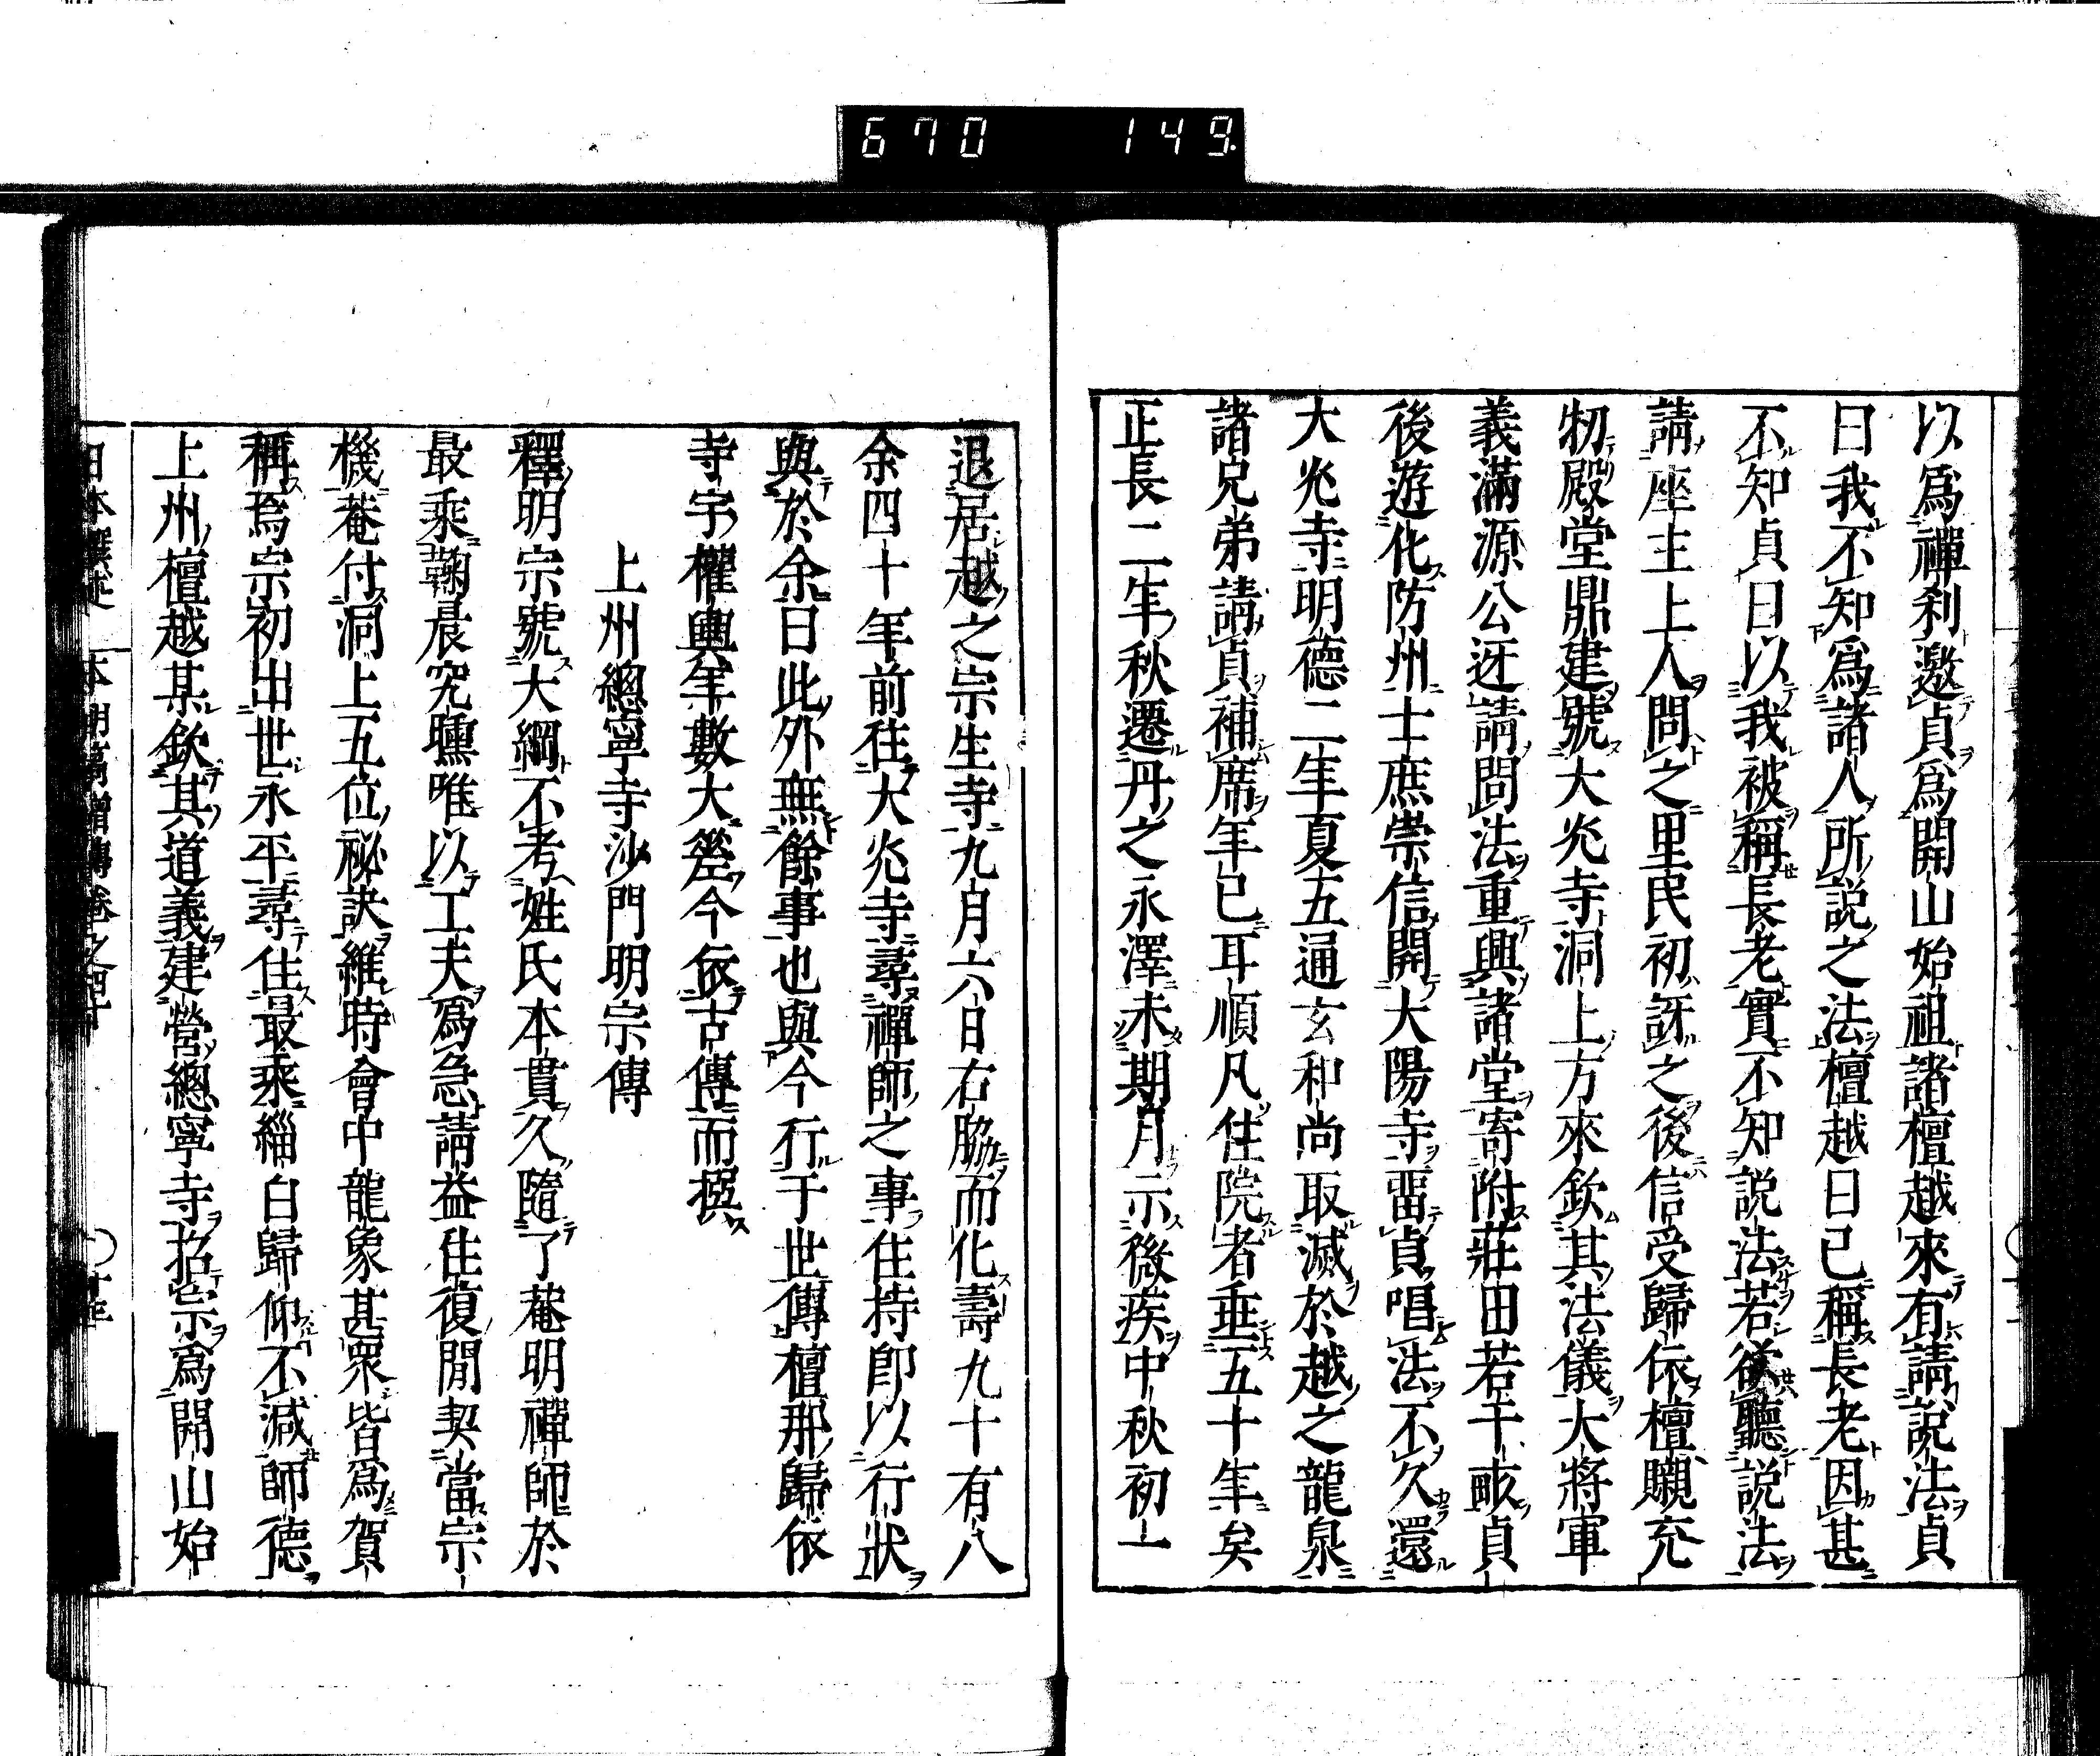 670 149.
以爲禪刹邀貞爲開山始祖諸檀越來有請説法貞
曰我不知爲諸人所説之法檀越曰已稱長老因甚
不知貞曰以我被稱長老實不知説法若欲聽説法
請座主上人問之里民初訝之後信受歸依檀贐充
牣殿堂鼎建號大兆寺洞上方來欽其法儀大將軍
義滿源公迓請問法重興諸堂寄附莊田若干畝貞
後遊化防州士庶崇信開大陽寺畱貞唱法不久還
大兆寺明德二年夏五通玄和尚取滅於越之龍泉
諸兄弟請貞補席年已耳順凡住院者垂五十年矣
正長二年秋遷丹之永澤未期月示微疾中秋初一
退居越之宗生寺九月六日右脇而化壽九十有八
余四十年前往大兆寺尋禪師之事住持卽以行狀
與於余曰此外無餘事也與今行于世傳檀那歸依
寺宇權輿年數大差今依古傳而撰
上州總寧寺沙門明宗傳
釋明宗號大綱不考姓氏本貫久隨了菴明禪師於
最乘鞠晨究曛唯以工夫爲急請益往復閒契當宗
機菴付洞上五位祕訣維時會中龍象甚衆皆爲賀
稱焉宗初出世永平尋住最乘緇白歸仰不減師德
上州檀越某欽其道義建營總寧寺招宗爲開山始